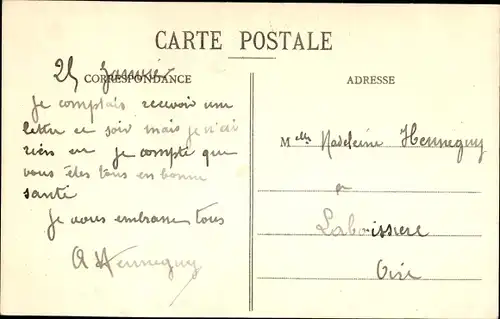 CARTE POSTALE
25 Janvier
CORRESPONDANCE
Je comptais recevoir une
lettre ce soir mais je n'ai
rien eu Je compte que
vous êtes tous en bonne
santé
Je vous embrasse tous
A Henneguy
ADRESSE
Melle Madeleine Henneguy
à
Laboissiere
Oise